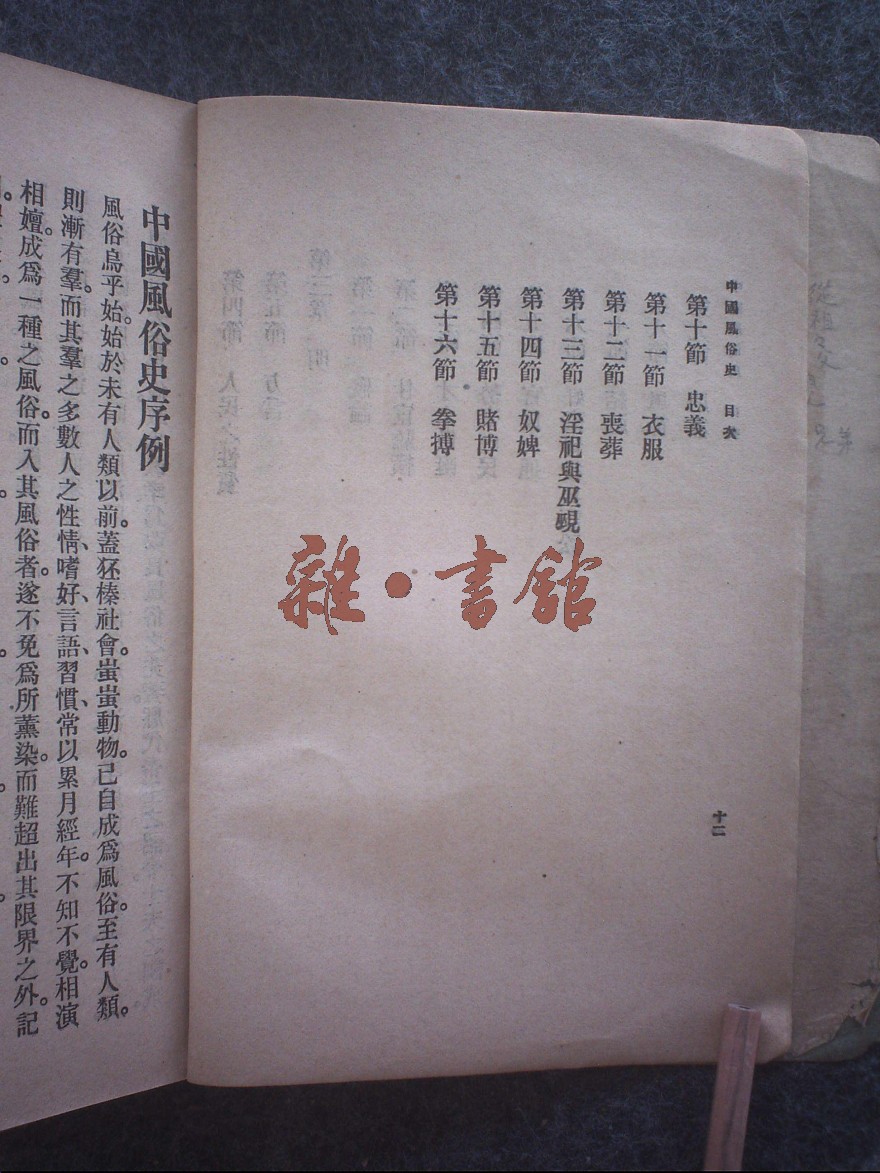 中國風俗史 目次
第十節 忠義
第十一節 衣服
第十二節 喪葬
第十三節 淫祀與巫覡
第十四節 奴婢
第十五節 賭博
第十六節 拳搏
十二
雜·書館
中國風俗史序例
風俗烏乎始始於未有人類以前。蓋狉榛社會。蚩蚩動物。已自成爲風俗。至有人類。
則漸有羣。而其羣之多數人之性情、嗜好、言語、習慣、常以累月經年。不知不覺。相演
相嬗。成爲一種之風俗。而入其風俗者。遂不免爲所薰染。而難超出其限界之外。記